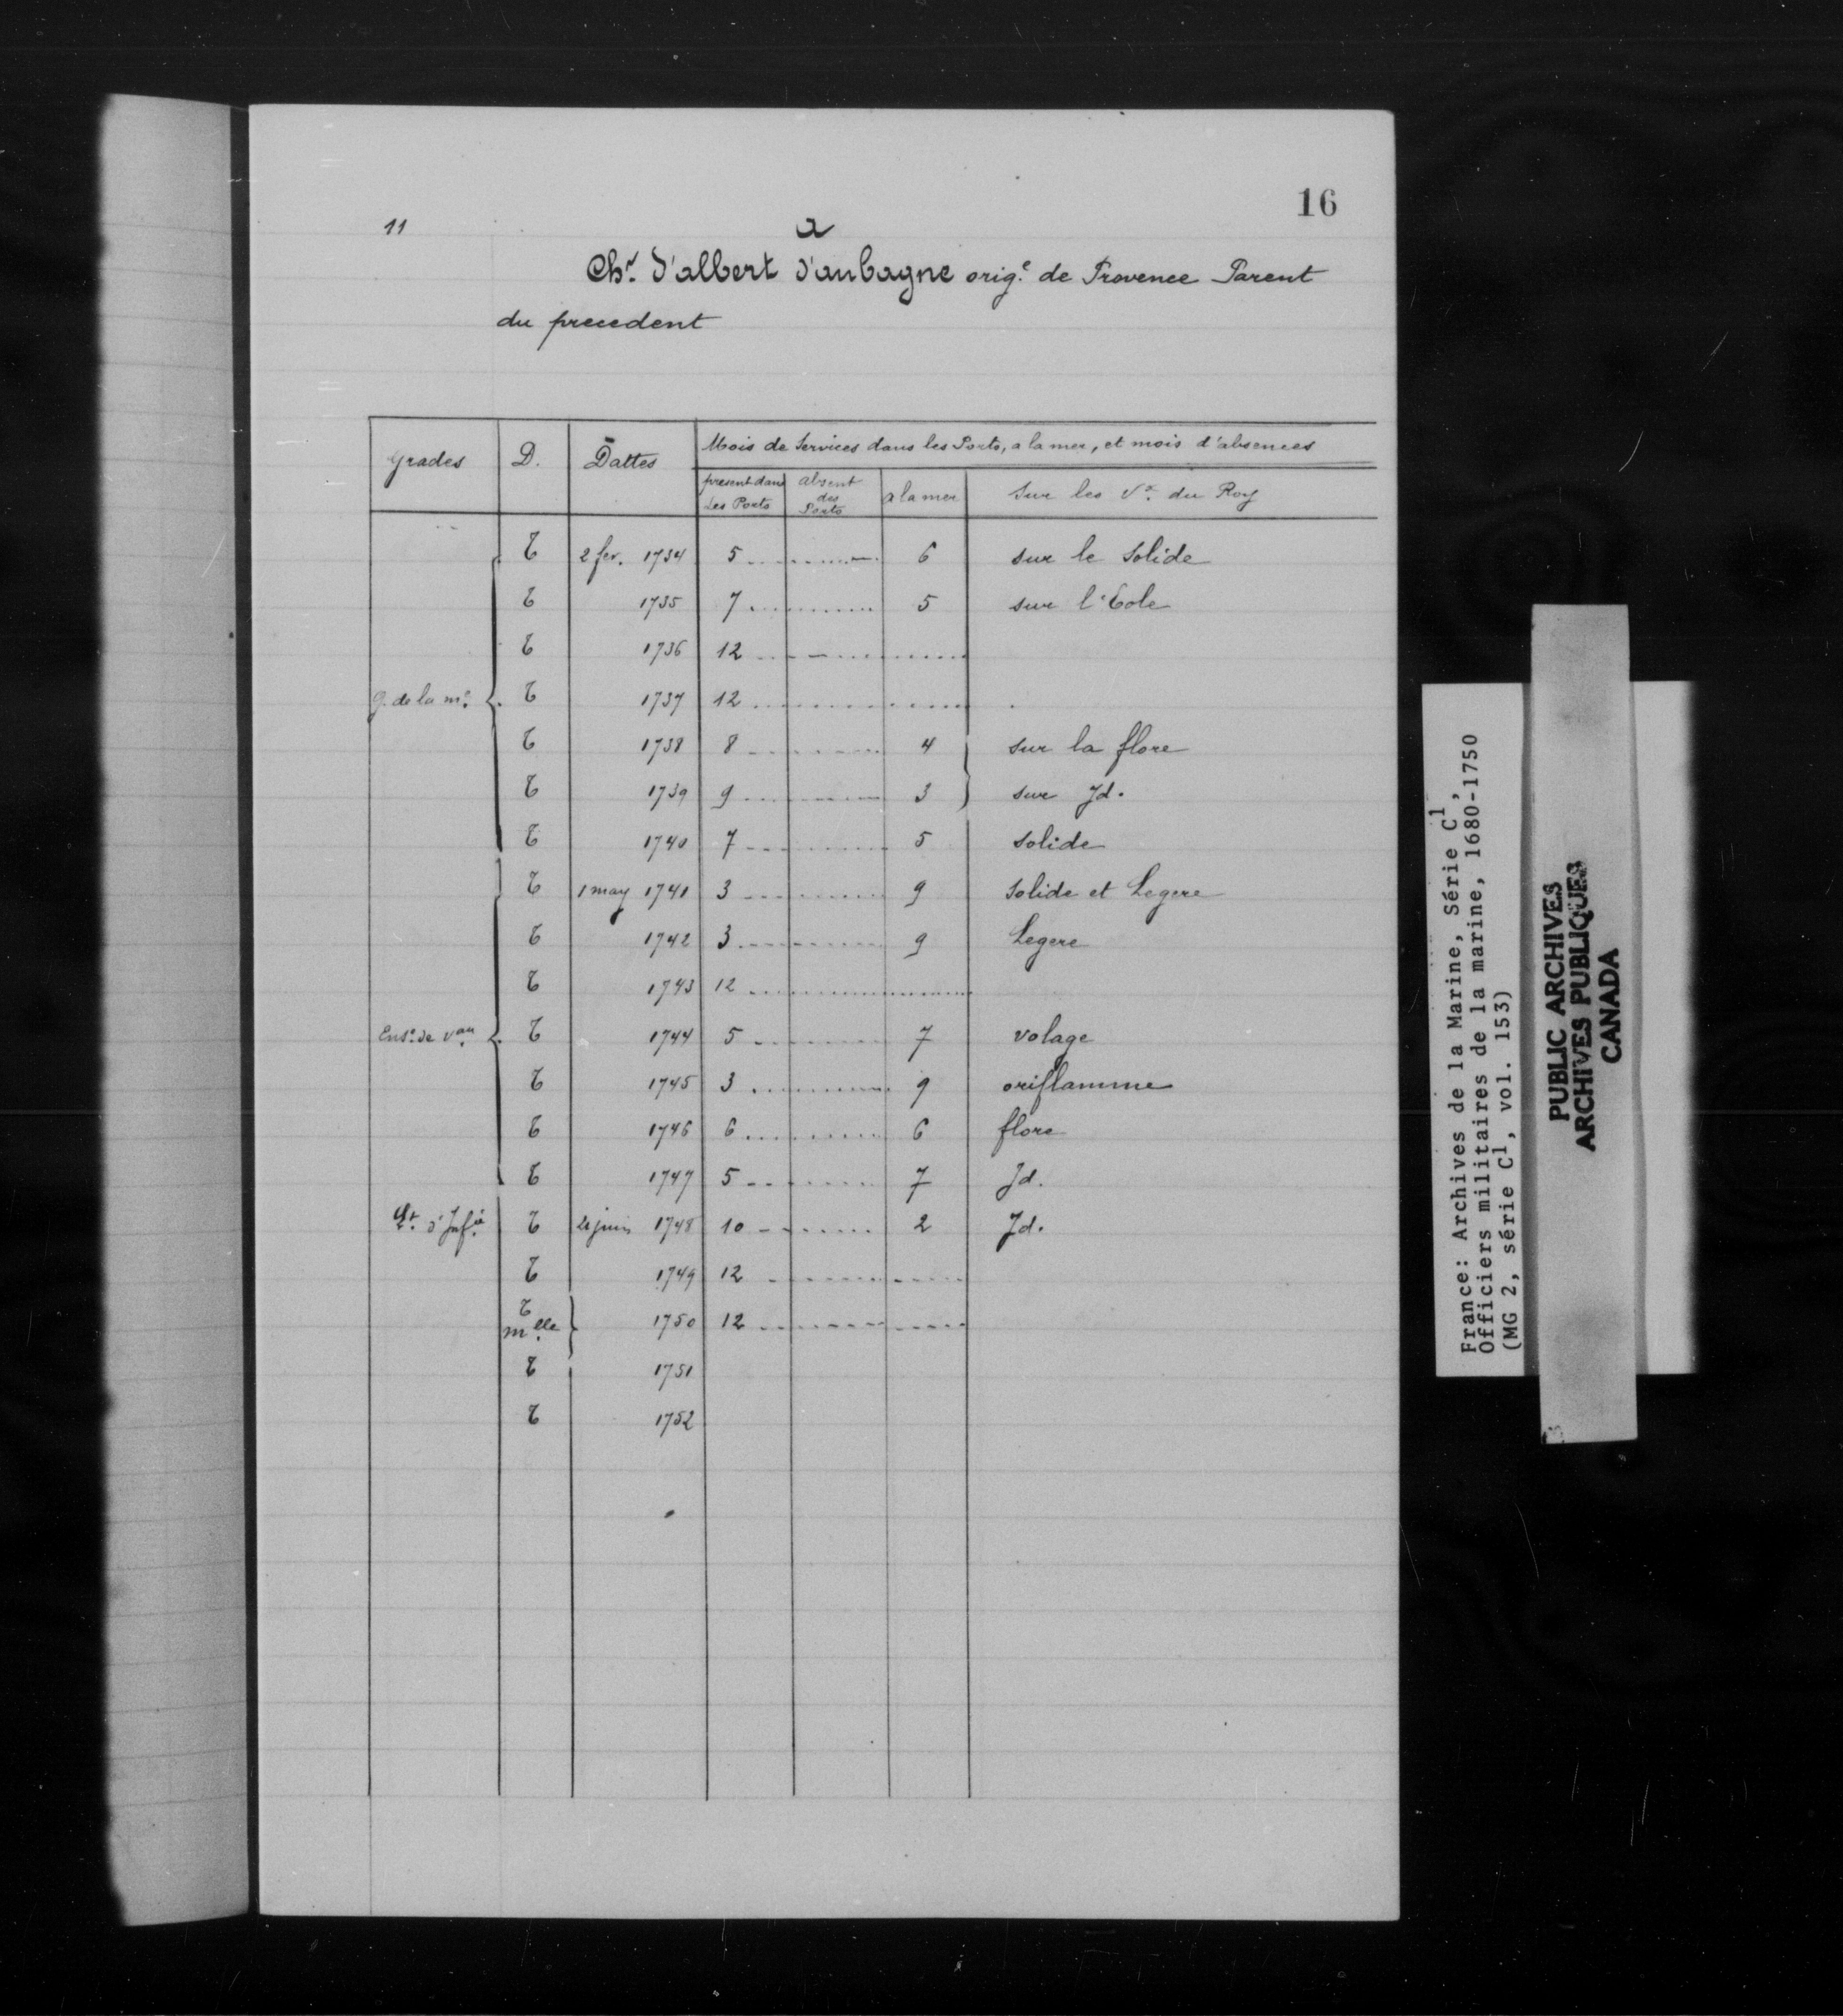 16
11
a
Chr. d'albert d'aubagne orig.e de Provence Parent
du precedent
Grades D. Dattes Mois de Services dans les Ports, a la mer, et mois d'absences
present dans les Ports absent des Ports a la mer Sur les Vx. du Roy
T 2 fev. 1734 5 6 sur le Solide
T 1735 7 5 sur l'Eole
T 1736 12
g. de la me. T 1737 12
T 1738 8 4 sur la flore
T 1739 9 3 sur Jd.
T 1740 7 5 Solide
T 1 may 1741 3 9 Solide et Legere
T 1742 3 9 Legere
T 1743 12
Ens.e de Vau T 1744 5 7 volage
T 1745 3 9 oriflamme
T 1746 6 6 flore
T 1747 5 7 Jd.
Lt. d'Infie T juin 1748 10 2 Jd.
T 1749 12
T melle 1750 12
T 1751
T 1752
France: Archives de la Marine, Série C1,
Officiers militaires de la marine, 1680-1750
(MG 2, série C1, vol. 153)
PUBLIC ARCHIVES
ARCHIVES PUBLIQUES
CANADA